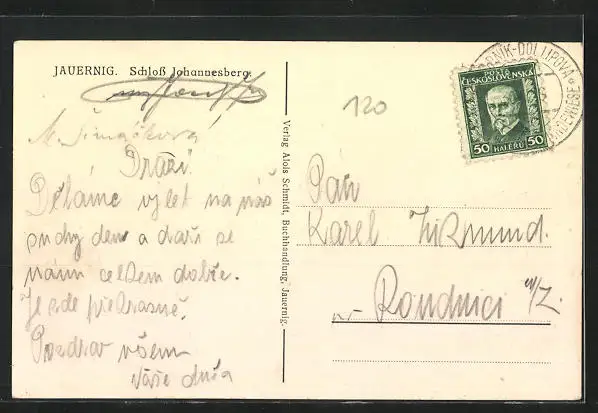 JAUERNIG. Schloß Johannesberg.
M. Šimáčková
Drazí.
Děláme výlet na náš
suchý den a daří se
nám celkem dobře.
Je zde překrásně.
Pozdrav všem
Vaše duša
Verlag Alois Schmidt, Buchhandlung, Jauernig.
120
POŠTA
ČESKOSLOVENSKÁ
50 HALÉŘŮ 50
DOL. LIPOVÁ
Pán
Karel Zikmund.
v Roudnici n/Z.